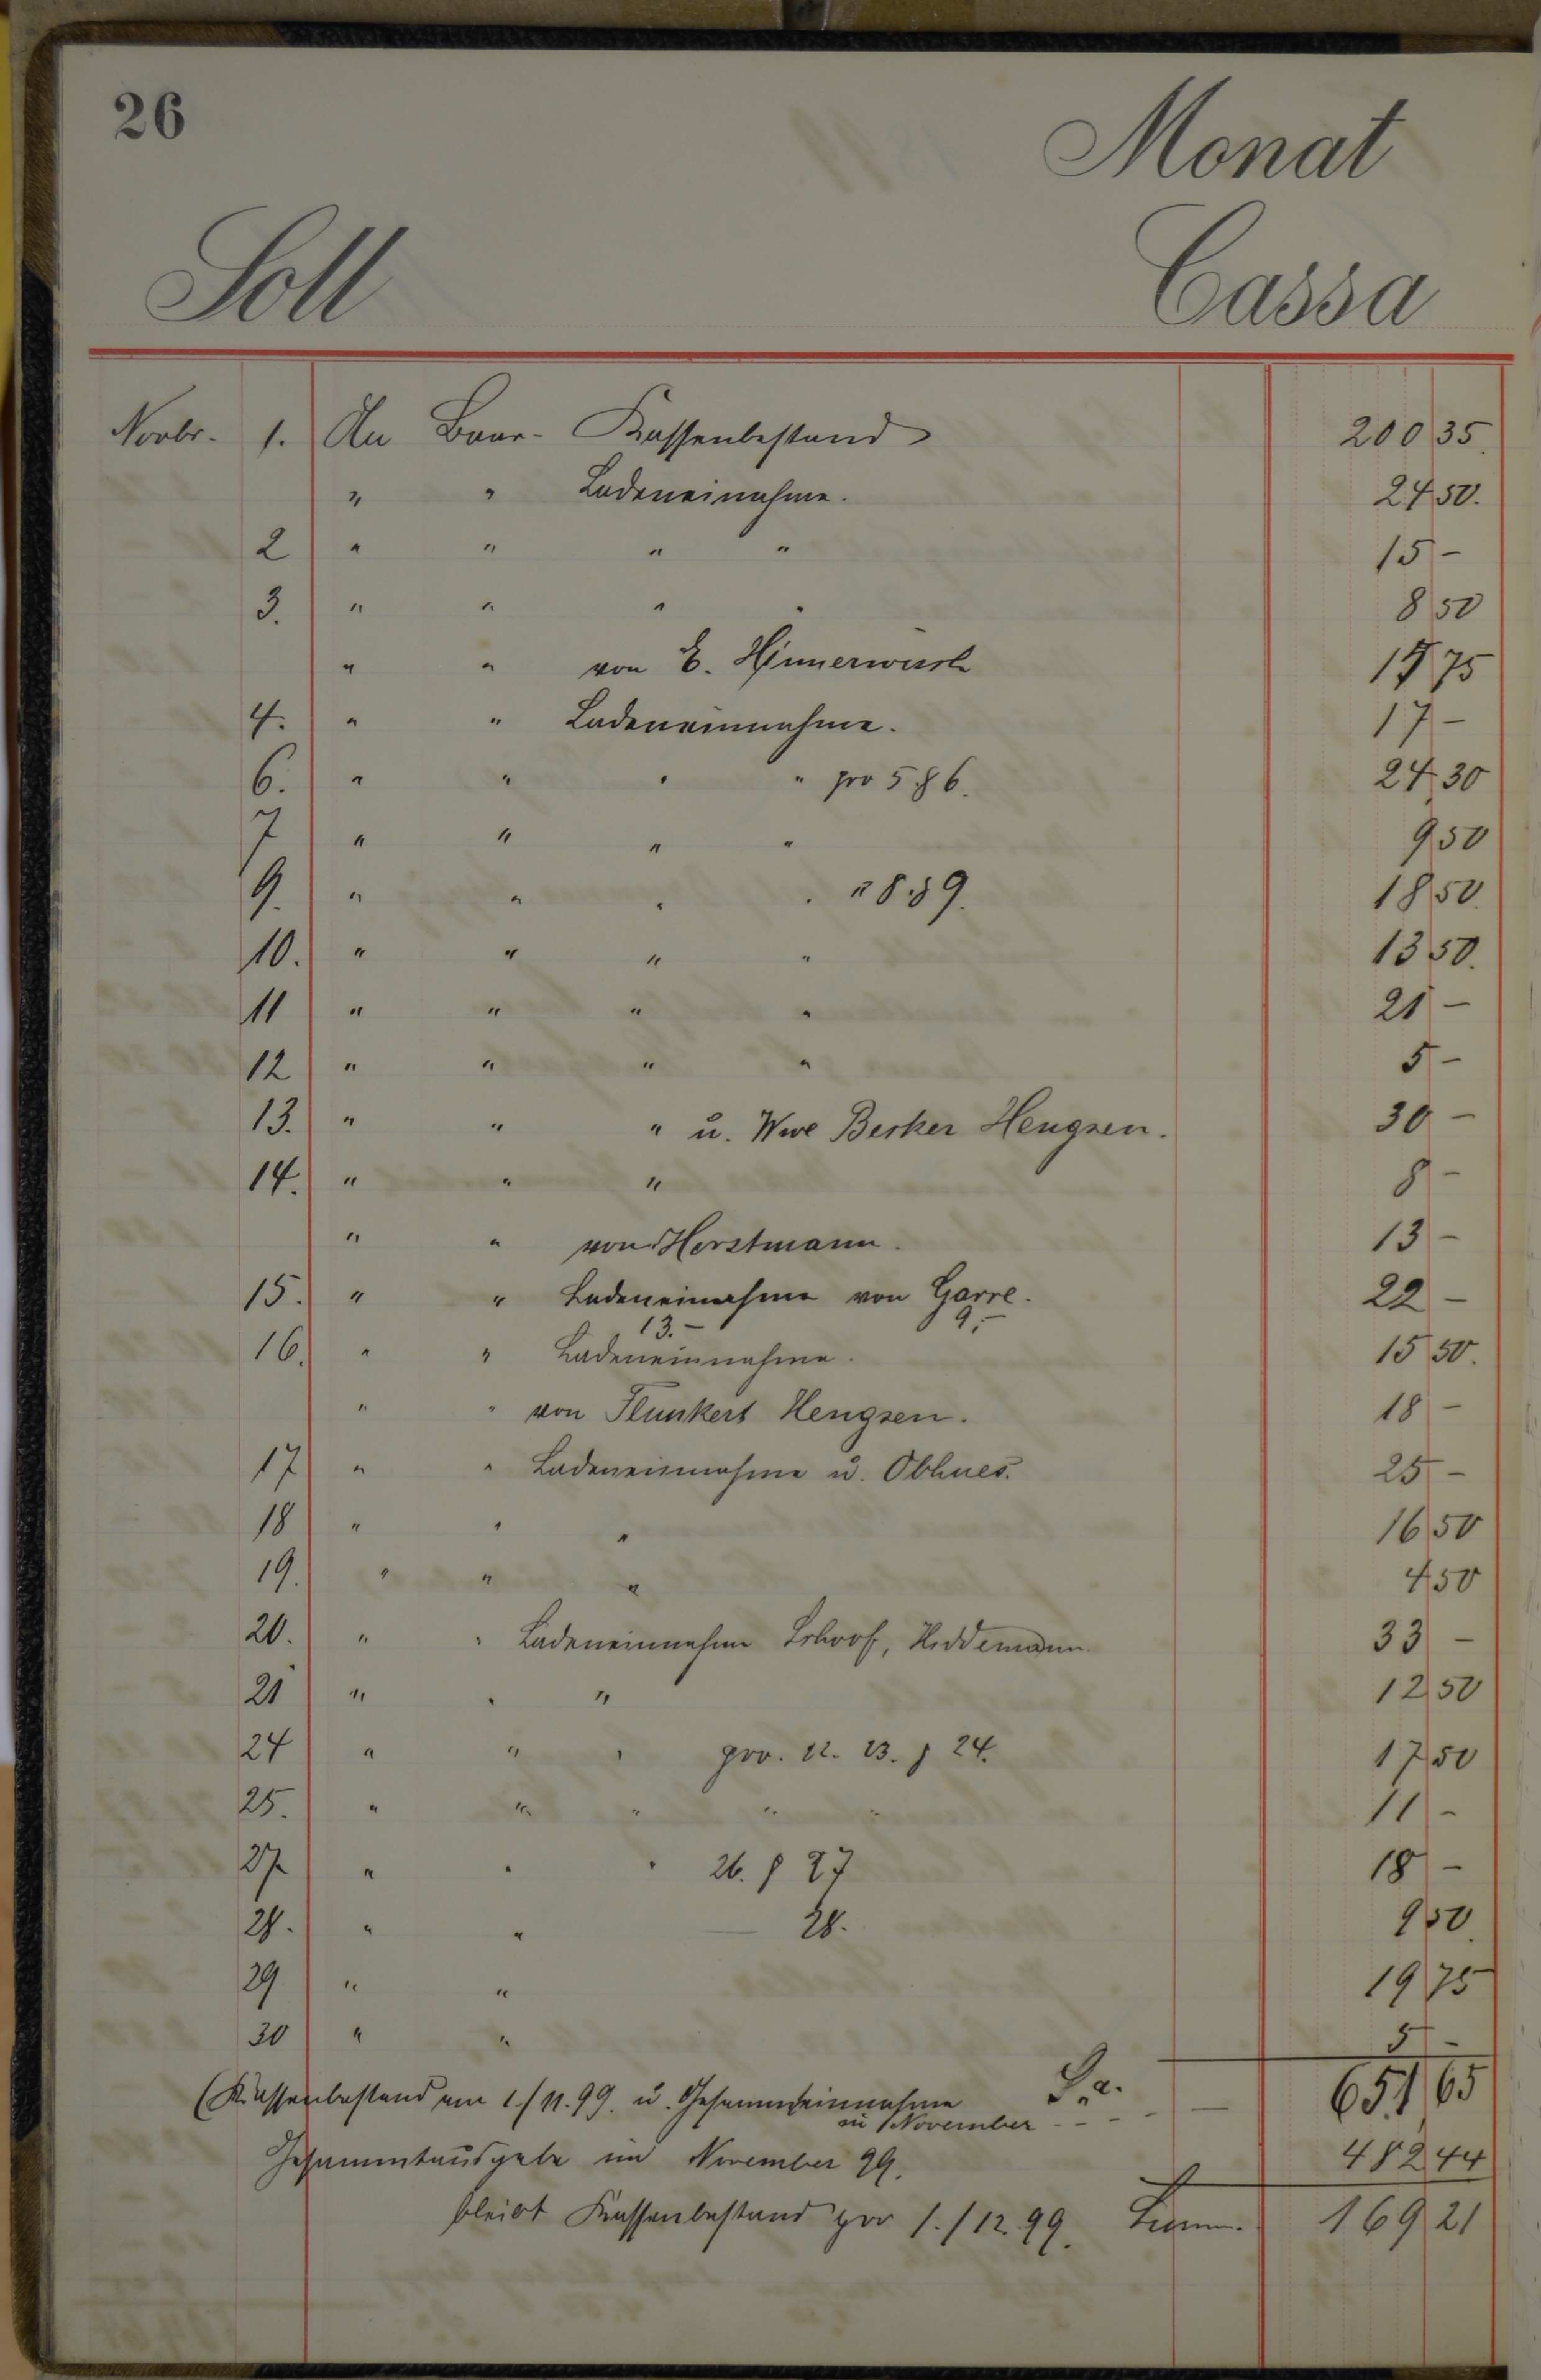 26
Monat
Soll Cassa
Novbr. 1. An Baar- Kassenbestand 200 35.
" " Ladeneinahme. 24 50.
2 " " " " 15 -
3. " " " " 8 50
" " von E. Hinnerwisch 15 75
4. " " Ladeneinnahme. 17 -
6. " " " " pro 5 & 6. 24 30
7 " " " " 9 50
9. " " " " " 8 & 9. 18 50.
10. " " " " 13 50.
11 " " " " 21 -
12 " " " " 5 -
13. " " " u. Wwe Berker Hengsen. 30 -
14. " " " 8 -
" " von Horstmann. 13 -
15. " " Ladeneinahme von Garre. 22 -
13.- 9.-
16. " " Ladeneinnahme. 15 50.
" " von Flunkert Hengsen. 18 -
17 " " Ladeneinnahme u. Obhues. 25 -
18 " " " 16 50
19. " " " 4 50
20. " " Ladeneinnahme Schoof, Hiddemann. 33 -
21 " " " 12 50
24 " " " pro. 22. 23. & 24. 17 50
25. " " " " " 11 -
27. " " " 26. & 27 18 -
28. " " 28. 9 50.
29 " " 19 75
30 " " 5 -
(Kassenbestand am 1./11.99. u. Gesammteinnahme Sa. 651 65
in November - - - -
Gesammtausgabe im November 99. 482 44
bleibt Kassenbestand pro 1./12.99. 169 21